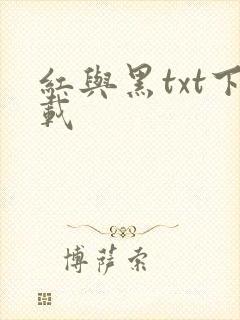 紅與黑txt下
載
博薩索